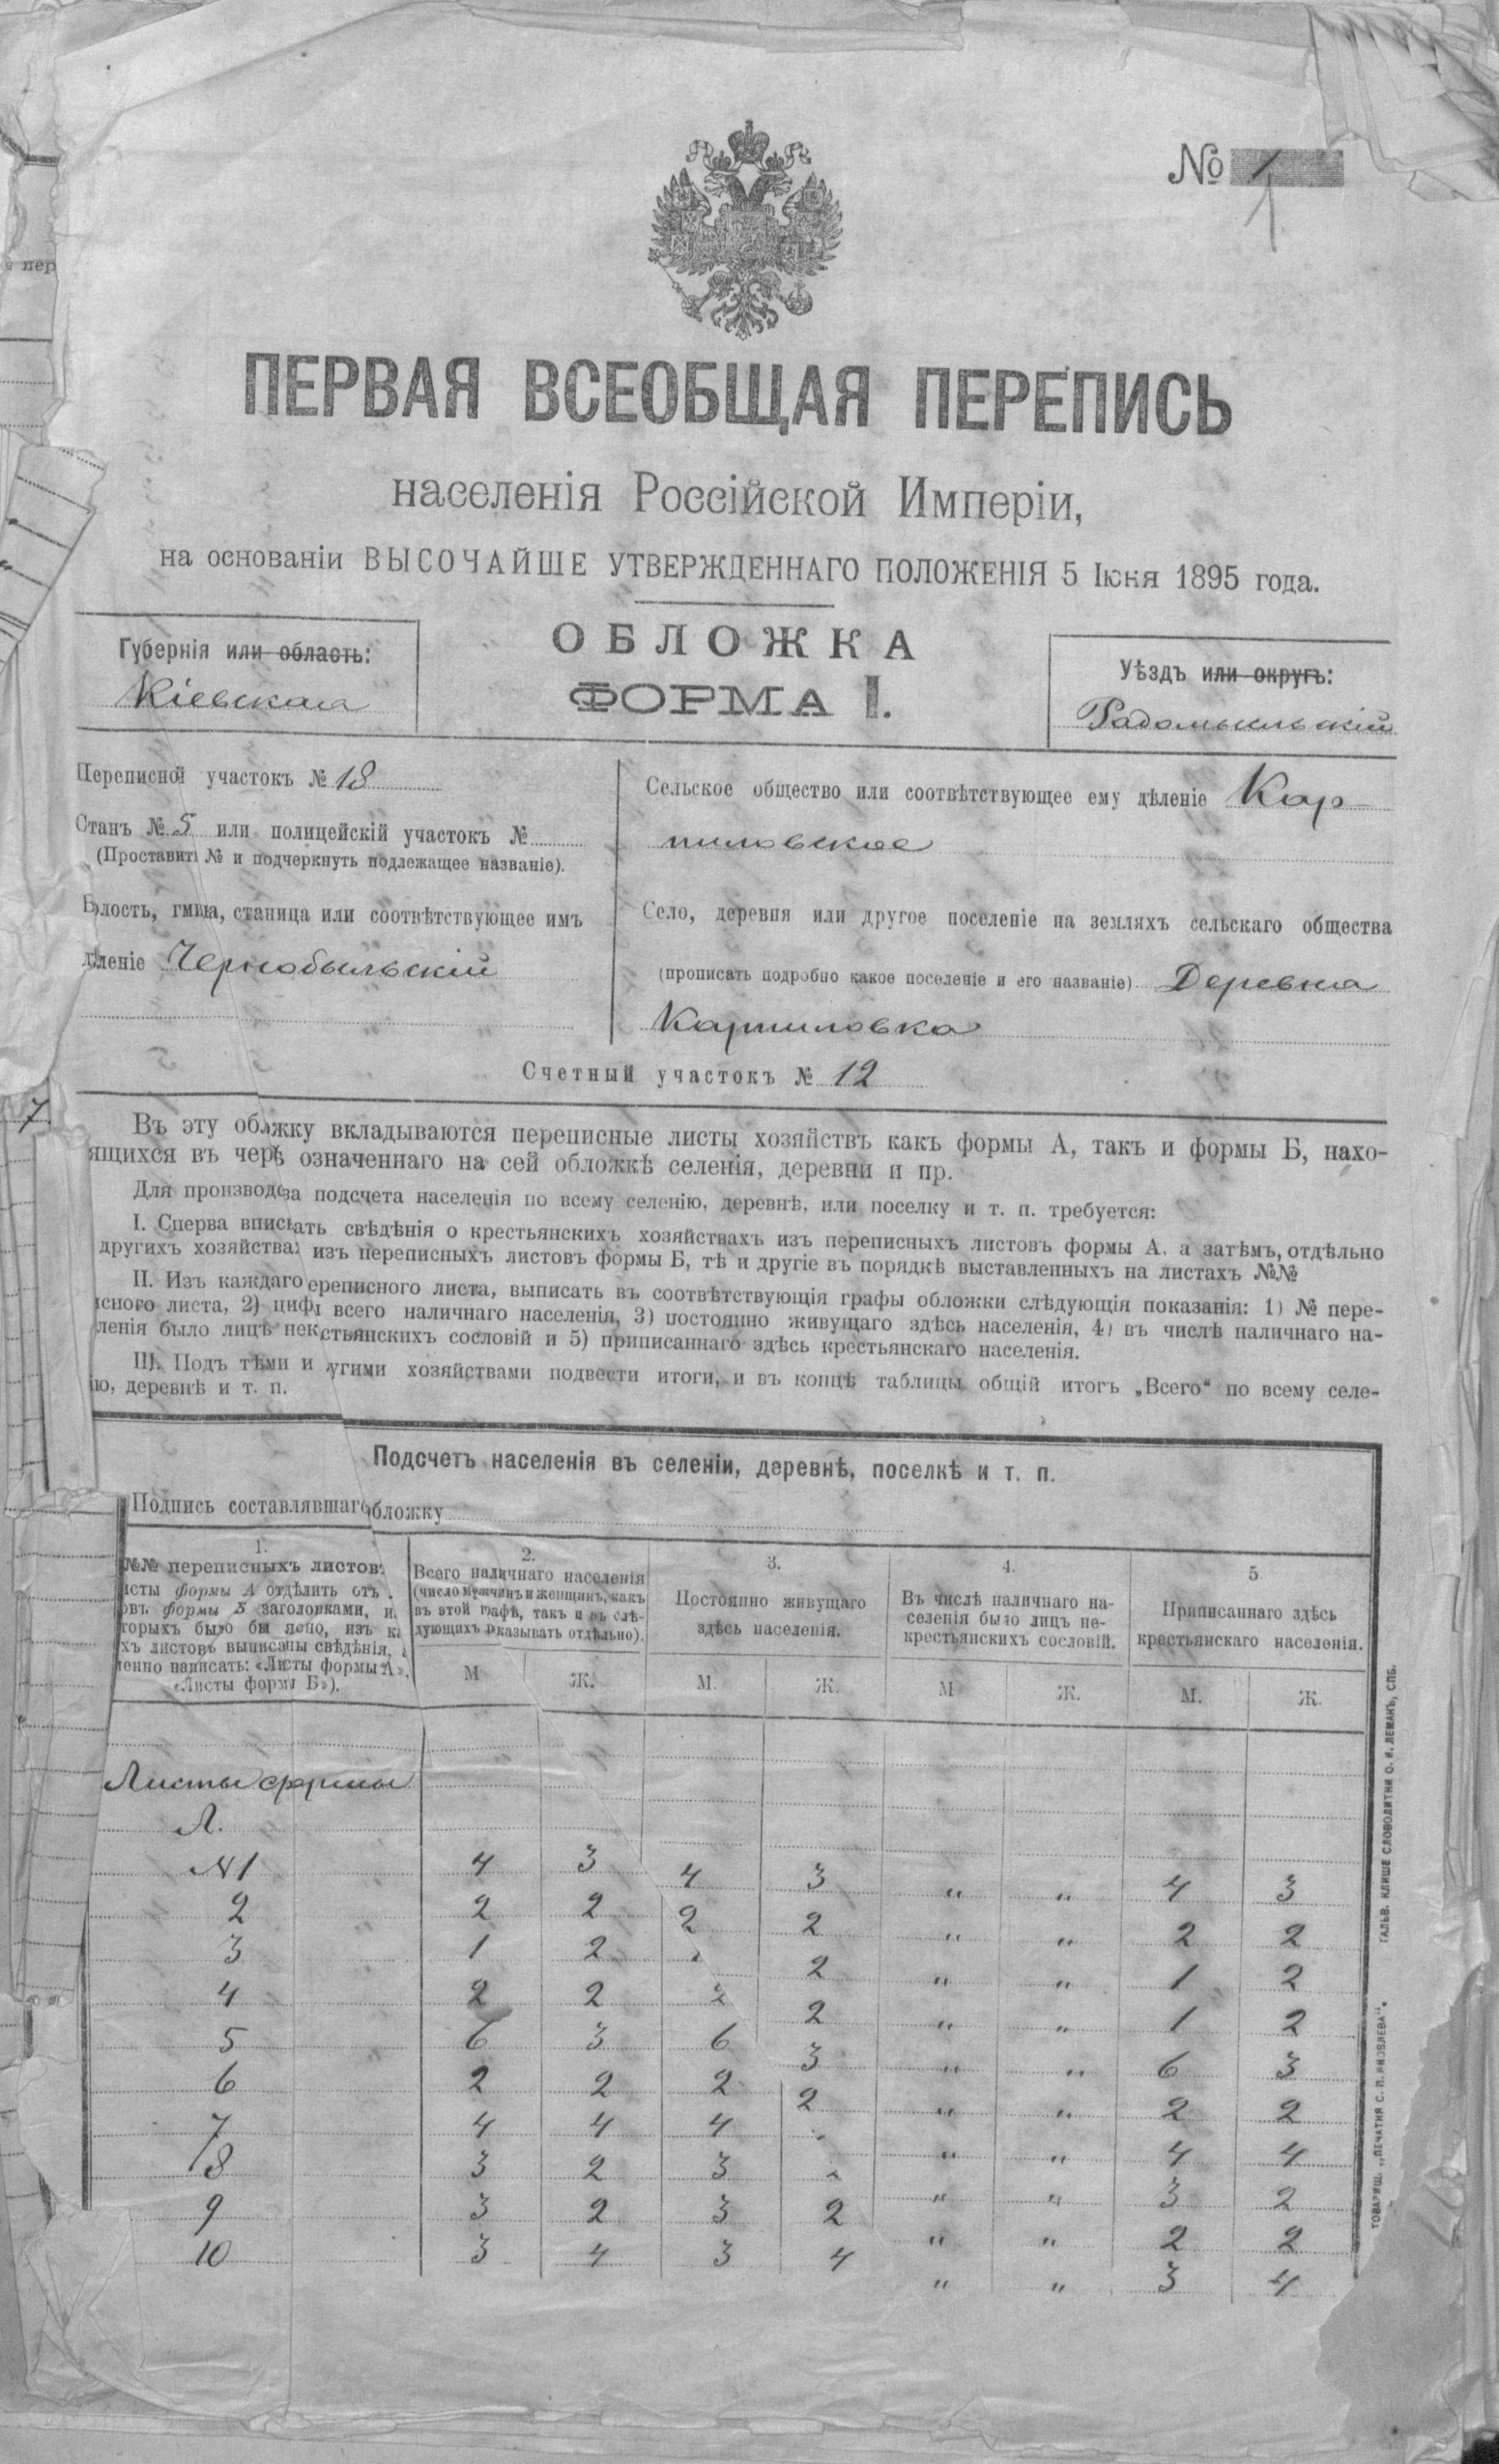 № 1
1
ПЕРВАЯ ВСЕОБЩАЯ ПЕРЕПИСЬ
населенія Россійской Имперіи,
на основаніи ВЫСОЧАЙШЕ УТВЕРЖДЕННАГО ПОЛОЖЕНІЯ 5 Іюня 1895 года.
Губернія или область:
Кіевская
ОБЛОЖКА
ФОРМА I.
Уѣздъ или округъ:
Радомысльскій
Переписной участокъ № 18
Станъ № 5 или полицейскій участокъ №
(Проставить № и подчеркнуть подлежащее названіе).
Волость, гмина, станица или соотвѣтствующее имъ
дѣленіе Чернобыльскій
Сельское общество или соотвѣтствующее ему дѣленіе Кар-
пиловское
Село, деревня или другое поселеніе на земляхъ сельскаго общества
(прописать подробно какое поселеніе и его названіе) Деревня
Карпиловка
Счетный участокъ № 12
7
Въ эту обложку вкладываются переписные листы хозяйствъ какъ формы А, такъ и формы Б, нахо-
ящихся въ черѣ означеннаго на сей обложкѣ селенія, деревни и пр.
Для производсза подсчета населенія по всему селенію, деревнѣ, или поселку и т. п. требуется:
I. Сперва вписать свѣдѣнія о крестьянскихъ хозяйствахъ изъ переписныхъ листовъ формы А, а затѣмъ, отдѣльно
другихъ хозяйства: изъ переписныхъ листовъ формы Б, тѣ и другіе въ порядкѣ выставленныхъ на листахъ №№
II. Изъ каждаго ереписного листа, выписать въ соотвѣтствующія графы обложки слѣдующія показанія: 1) № пере-
исного листа, 2) циф всего наличнаго населенія, 3) постоянно живущаго здѣсь населенія, 4) въ числѣ наличнаго на-
ленія было лицъ нек стьянскихъ сословій и 5) приписаннаго здѣсь крестьянскаго населенія.
III. Подъ тѣми и угими хозяйствами подвести итоги, и въ концѣ таблицы общій итогъ „Всего“ по всему селе-
ію, деревнѣ и т. п.
Подсчетъ населенія въ селеніи, деревнѣ, поселкѣ и т. п.
Подпись составлявшаго обложку
1.
№№ переписныхъ листов
исты формы А отдѣлить отъ
овъ формы Б заголовками, и
торыхъ было бы ясно, изъ к
хъ листовъ выписаны свѣдѣнія,
іенно написать: «Листы формы А»,
«Листы формы Б»).
2.
Всего наличнаго населенія
(число мужчинъ и женщинъ, какъ
въ этой графѣ, такъ и въ слѣ-
дующихъ показывать отдѣльно).
М Ж.
3.
Постоянно живущаго
здѣсь населенія.
М. Ж.
4.
Въ числѣ наличнаго на-
селенія было лицъ не-
крестьянскихъ сословій.
М Ж.
5
Приписаннаго здѣсь
крестьянскаго населенія.
М. Ж.
Листы формы
А.
№1 4 3 4 3 " " 4 3
2 2 2 2 2 " " 2 2
3 1 2 2 " " 1 2
4 2 2 2 2 " " 1 2
5 6 3 6 3 " " 6 3
6 2 2 2 2 " " 2 2
7 4 4 4 " " 4 4
8 3 2 3 " " 3 2
9 3 2 3 2 " " 2 2
10 3 4 3 4 " " 3 4
ГАЛЬВ. КЛИШЕ СЛОВОЛИТНИ О. И. ЛЕМАНЪ, СПБ.
ТОВАРИЩ. „ПЕЧАТНЯ С. П. ЯКОВЛЕВА“.